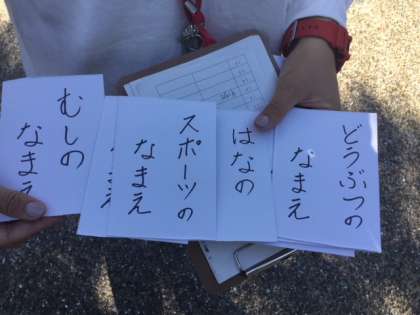 どうぶつの
なまえ
はなの
スポーツの
なまえ
むしの
なまえ